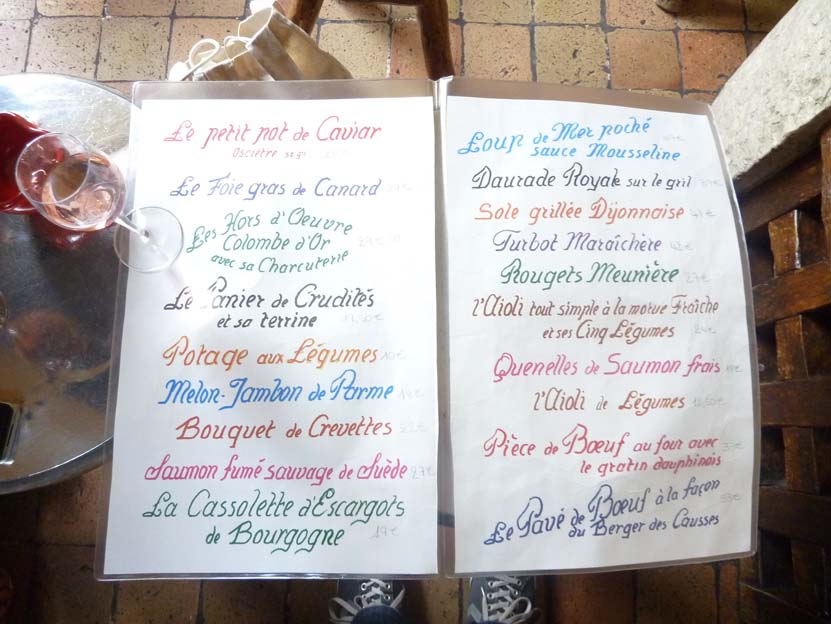 Le petit pot de Caviar
Osciètre
Le Foie gras de Canard
Les Hors d'Oeuvre
Colombe d'Or
avec sa Charcuterie
Le Panier de Crudités
et sa terrine
Potage aux Légumes 10€
Melon-Jambon de Parme
Bouquet de Crevettes
Saumon fumé sauvage de Suède 27€
La Cassolette d'Escargots
de Bourgogne 19€
Loup de Mer poché
sauce Mousseline
Daurade Royale sur le gril
Sole grillée Dijonnaise
Turbot Maraîchère
Rougets Meunière
l'Aïoli tout simple à la morue Fraîche
et ses Cinq Légumes
Quenelles de Saumon frais
l'Aïoli de Légumes
Pièce de Bœuf au four avec
le gratin dauphinois
Le Pavé de Bœuf à la façon
du Berger des Causses